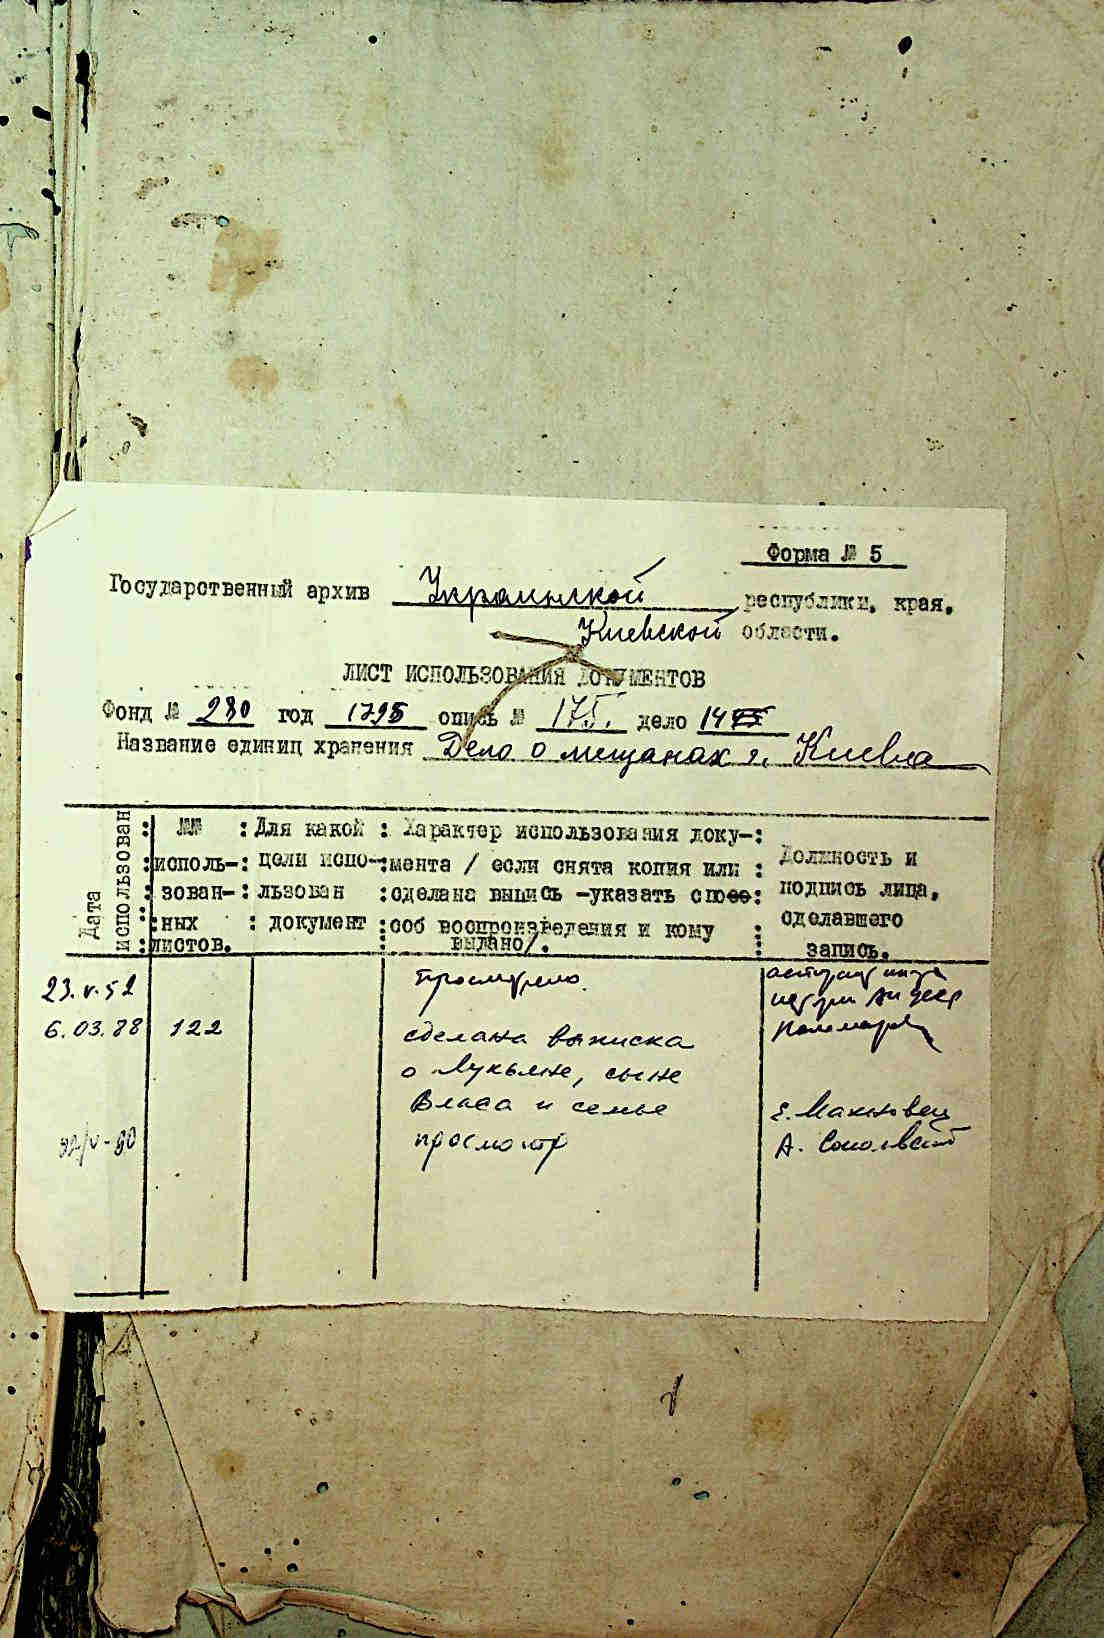 Форма № 5
Государственный архив Украинской республики, края,
Киевской области.
ЛИСТ ИСПОЛЬЗОВАНИЯ ДОКУМЕНТОВ
Фонд № 280 год 1795 опись № 175. дело 14
Название единиц хранения Дело о мещанах г. Киева
Дата использован : №№ : Для какой : Характер использования доку-:
: исполь-: цели испо-:мента / если снята копия или : Должность и
: зован-: льзован :сделана выпись -указать спосо: подпись лица,
:ных : документ :соб воспроизведения и кому : сделавшего
:листов. : выдано/. : запись.
23.V.52 просмотрено.
6.03.88 122 сделана выписка Пономарев
о Лукьяне, сыне
Власа и семье Е. Маковец
V-90 просмотр А. Соколовский